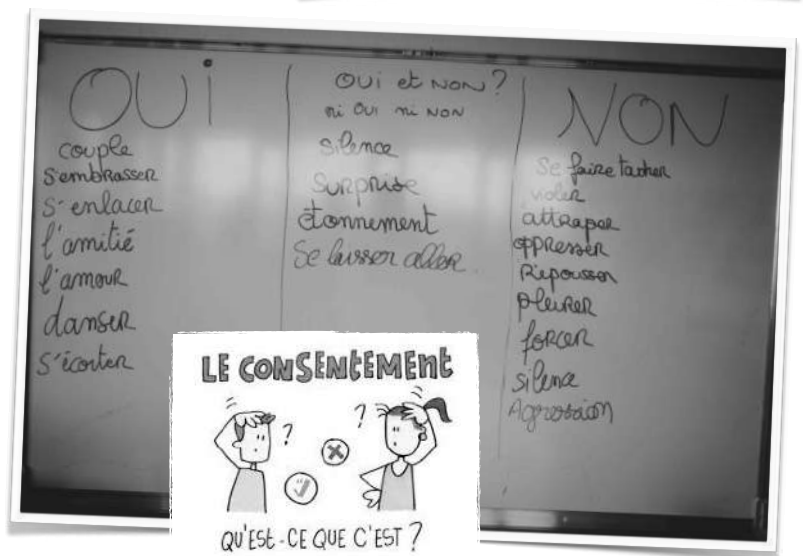 OUi
couple
s'embrasser
s'enlacer
l'amitié
l'amour
danser
s'écouter
OUi et NON ?
ni Oui ni NON
silence
Surprise
étonnement
Se laisser aller
NON
Se faire
violer
attraper
oppresser
Repousser
pleurer
forcer
silence
Agression
LE CONSENTEMENT
?
?
QU'EST-CE QUE C'EST ?